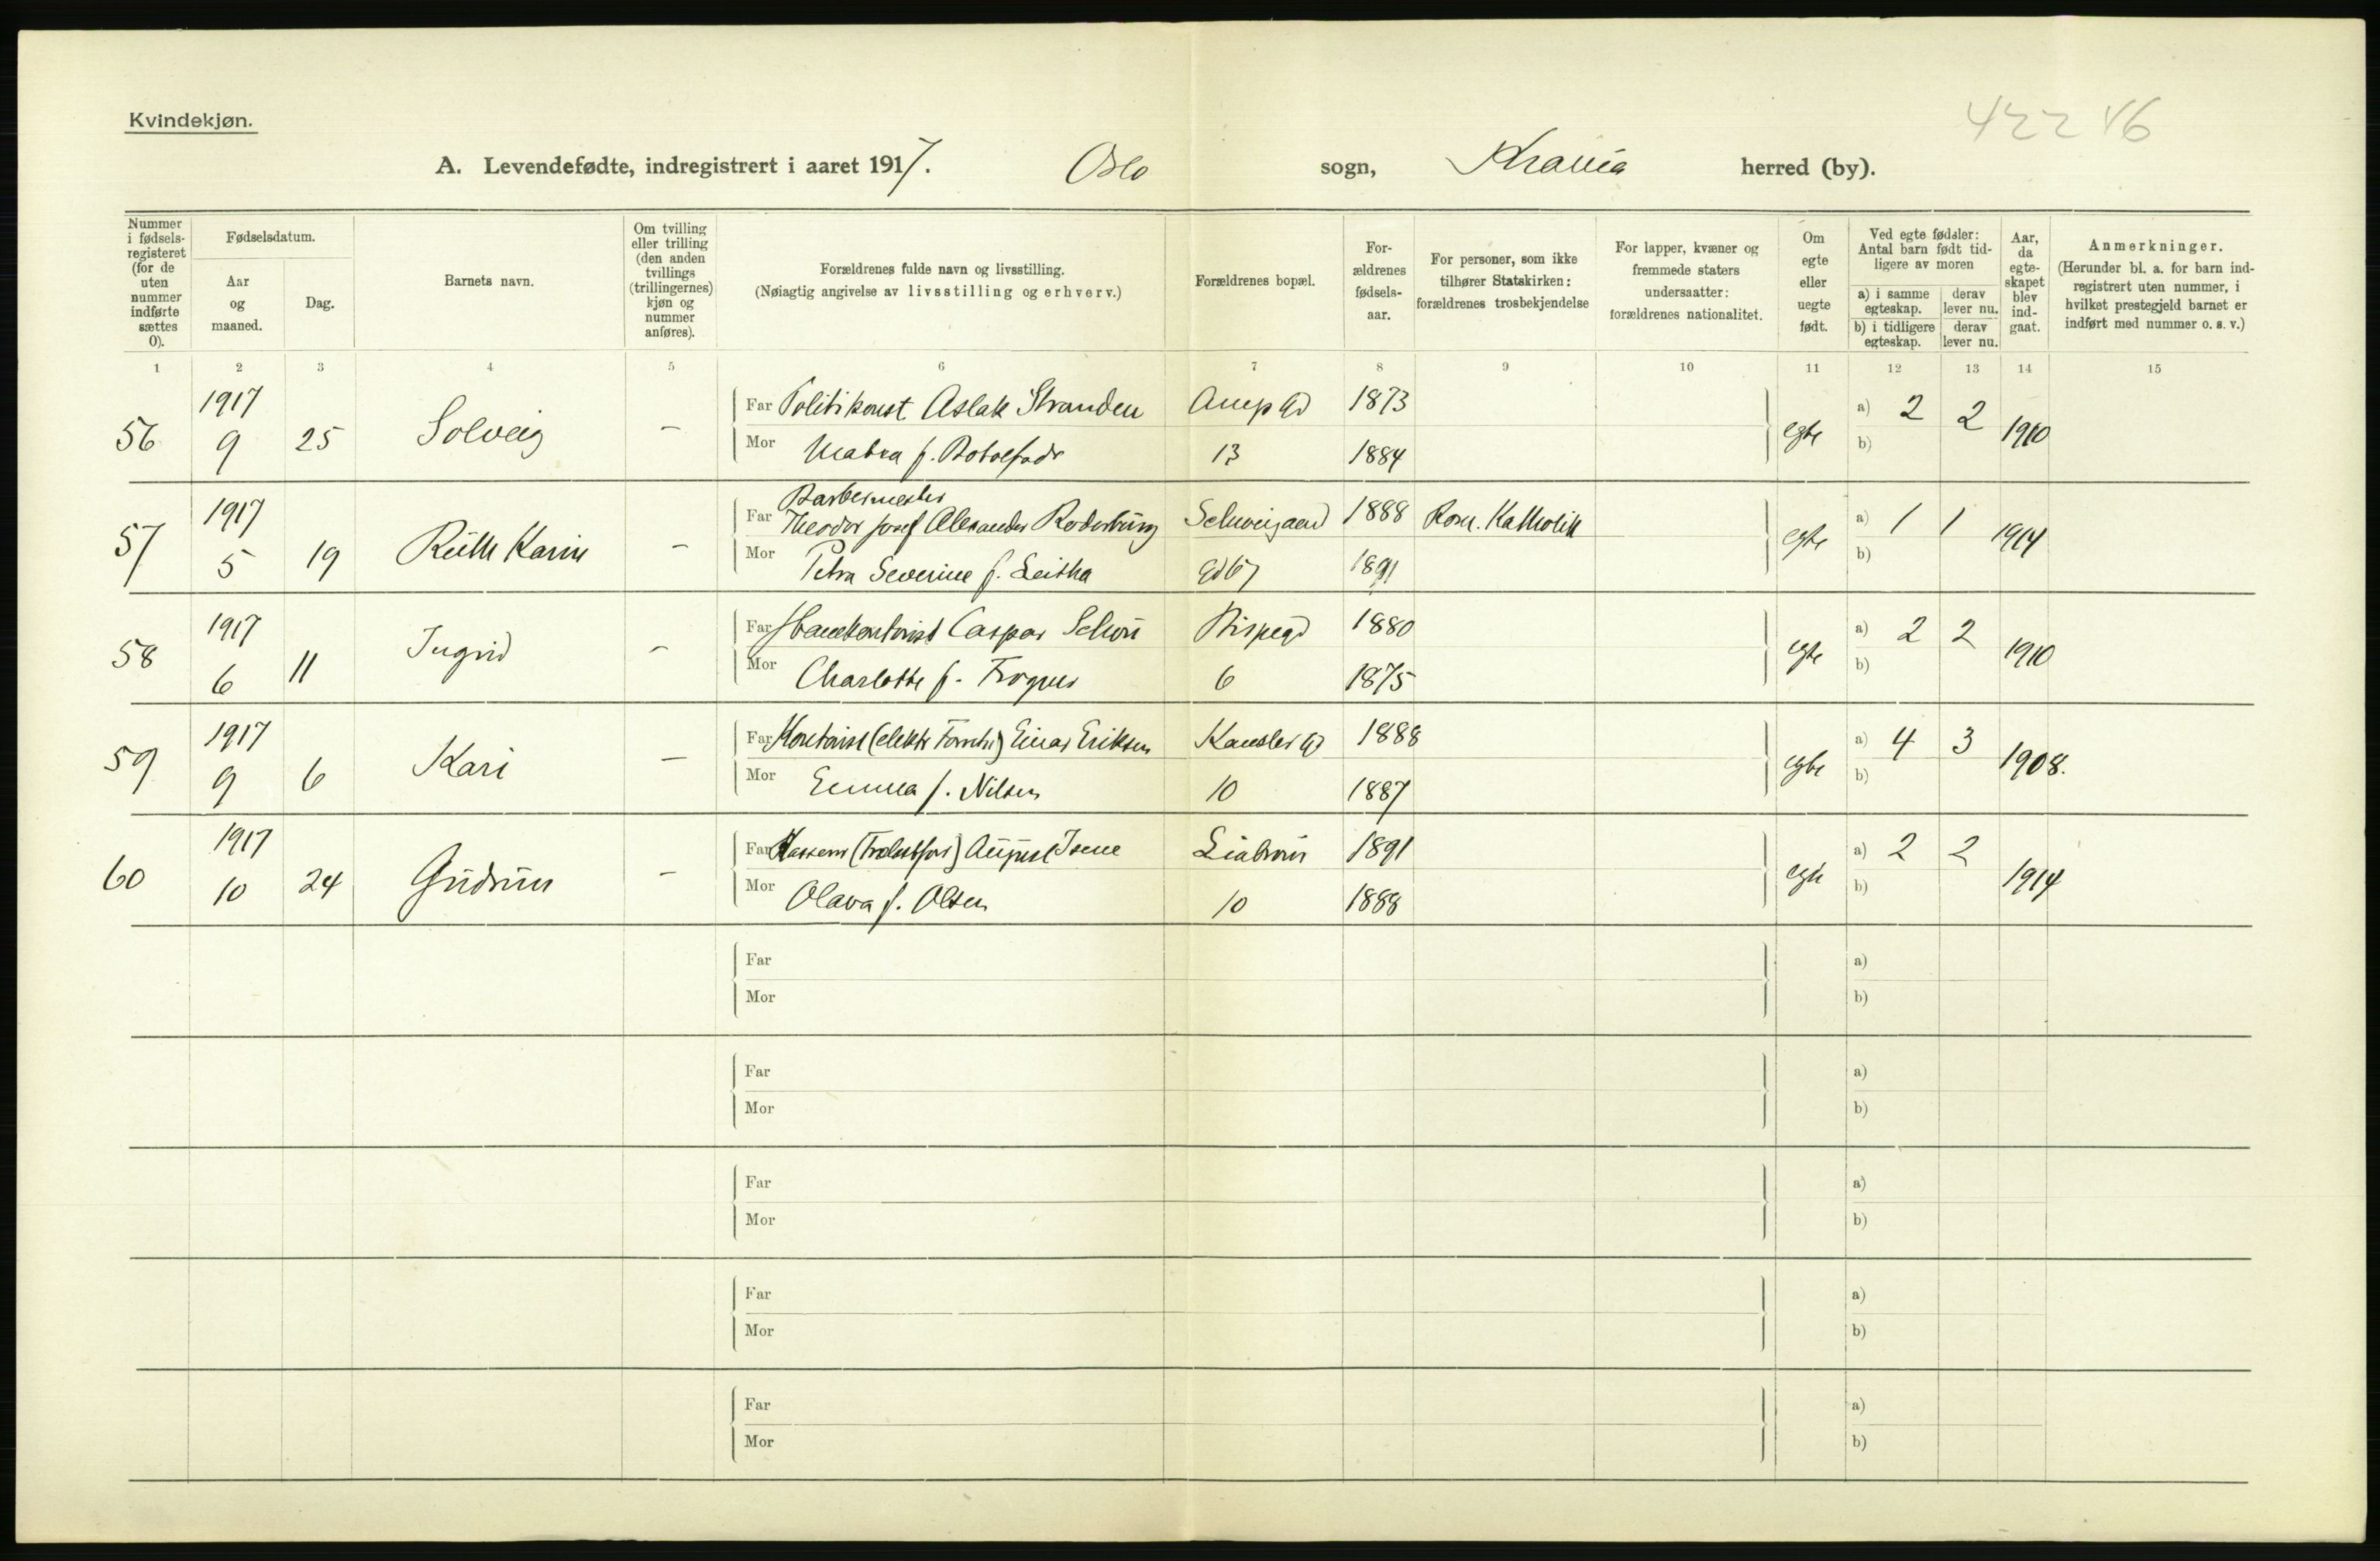 Kvindekjøn.
422 46
A. Levendefødte, indregistrert i aaret 1917. Oslo sogn, Krania herred (by).
Nummer i fødsels-registeret (for de uten nummer indførte sættes 0).
Fødselsdatum.
Aar og maaned.
Dag.
Barnets navn.
Om tvilling eller trilling (den anden tvillings (trillingernes) kjøn og nummer anføres).
Forældrenes fulde navn og livsstilling.
(Nøiagtig angivelse av livsstilling og erhverv.)
Forældrenes bopæl.
For-ældrenes fødsels-aar.
For personer, som ikke tilhører Statskirken: forældrenes trosbekjendelse
For lapper, kvæner og fremmede staters undersaatter: forældrenes nationalitet.
Om egte eller uegte født.
Ved egte fødsler: Antal barn født tid-ligere av moren
a) i samme egteskap.
derav lever nu.
b) i tidligere egteskap.
derav lever nu.
Aar, da egte-skapet blev ind-gaat.
Anmerkninger.
(Herunder bl. a. for barn ind-registrert uten nummer, i hvilket prestegjeld barnet er indført med nummer o. s. v.)
1 2 3 4 5 6 7 8 9 10 11 12 13 14 15
1917 Far Politikonst Aslak Stranden 1873 a) 2 2
56 9 25 Solveig – egte 1910
Mor f. 13 1884 b)
Barbermester
1917 Far Theodor Josef Alexander Roderburg Schweigaard 1888 Rom. Katholik a) 1 1
57 5 19 Ruth Karin – egte 1914
Mor Petra Severine f. Leitha Gd 67 1891 b)
1917 Far Caspar Schou Bispegd 1880 a) 2 2
58 6 11 Ingrid – egte 1910
Mor Charlotte f. Frogner 6 1875 b)
1917 Far Kontorist (elektr Forretn) Einar Eriksen Kansler Gd 1888 a) 4 3
59 9 6 Kari – egte 1908.
Mor Emma f. Nilsen 10 1887 b)
1917 Far August Isene Liabrun 1891 a) 2 2
60 10 24 Gudrun – egte 1914
Mor Olava f. Olsen 10 1888 b)
Far a)
Mor b)
Far a)
Mor b)
Far a)
Mor b)
Far a)
Mor b)
Far a)
Mor b)